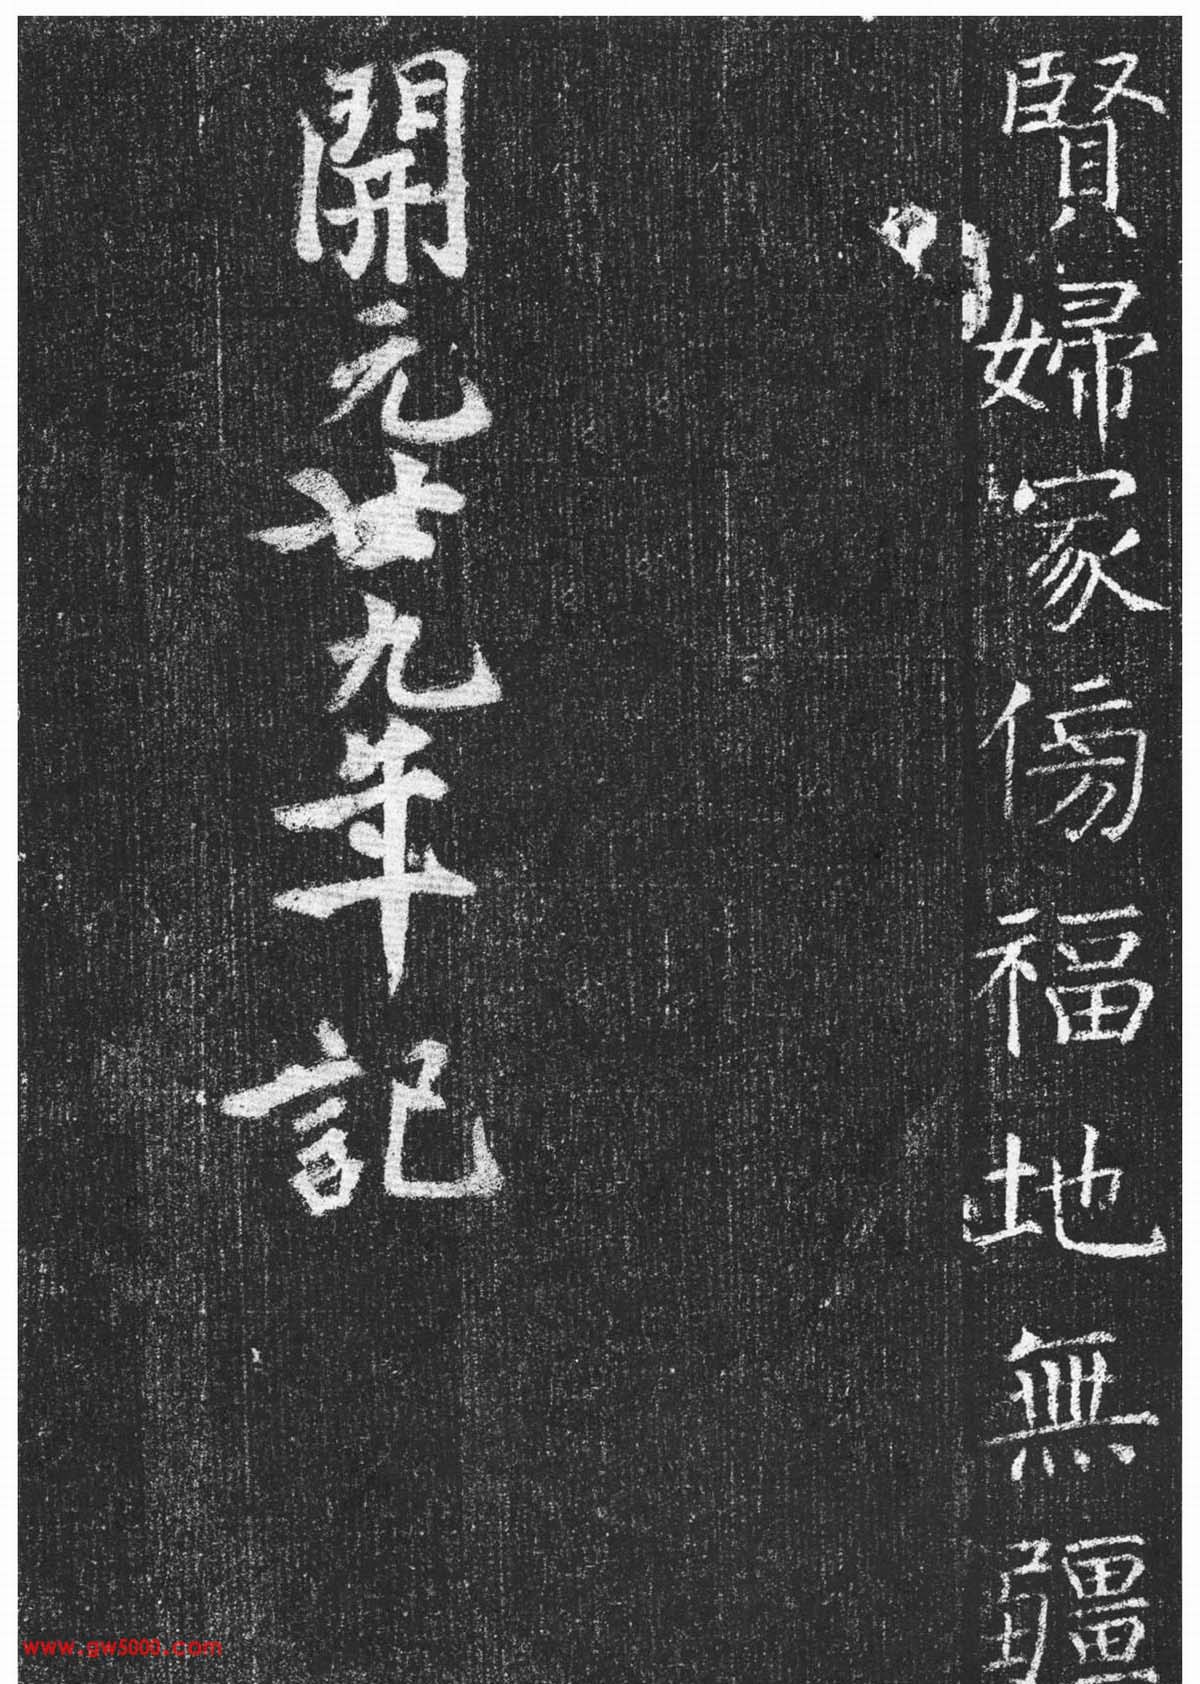 賢婦冢傍福地無疆
開元廿九年記
www.gw5000.com